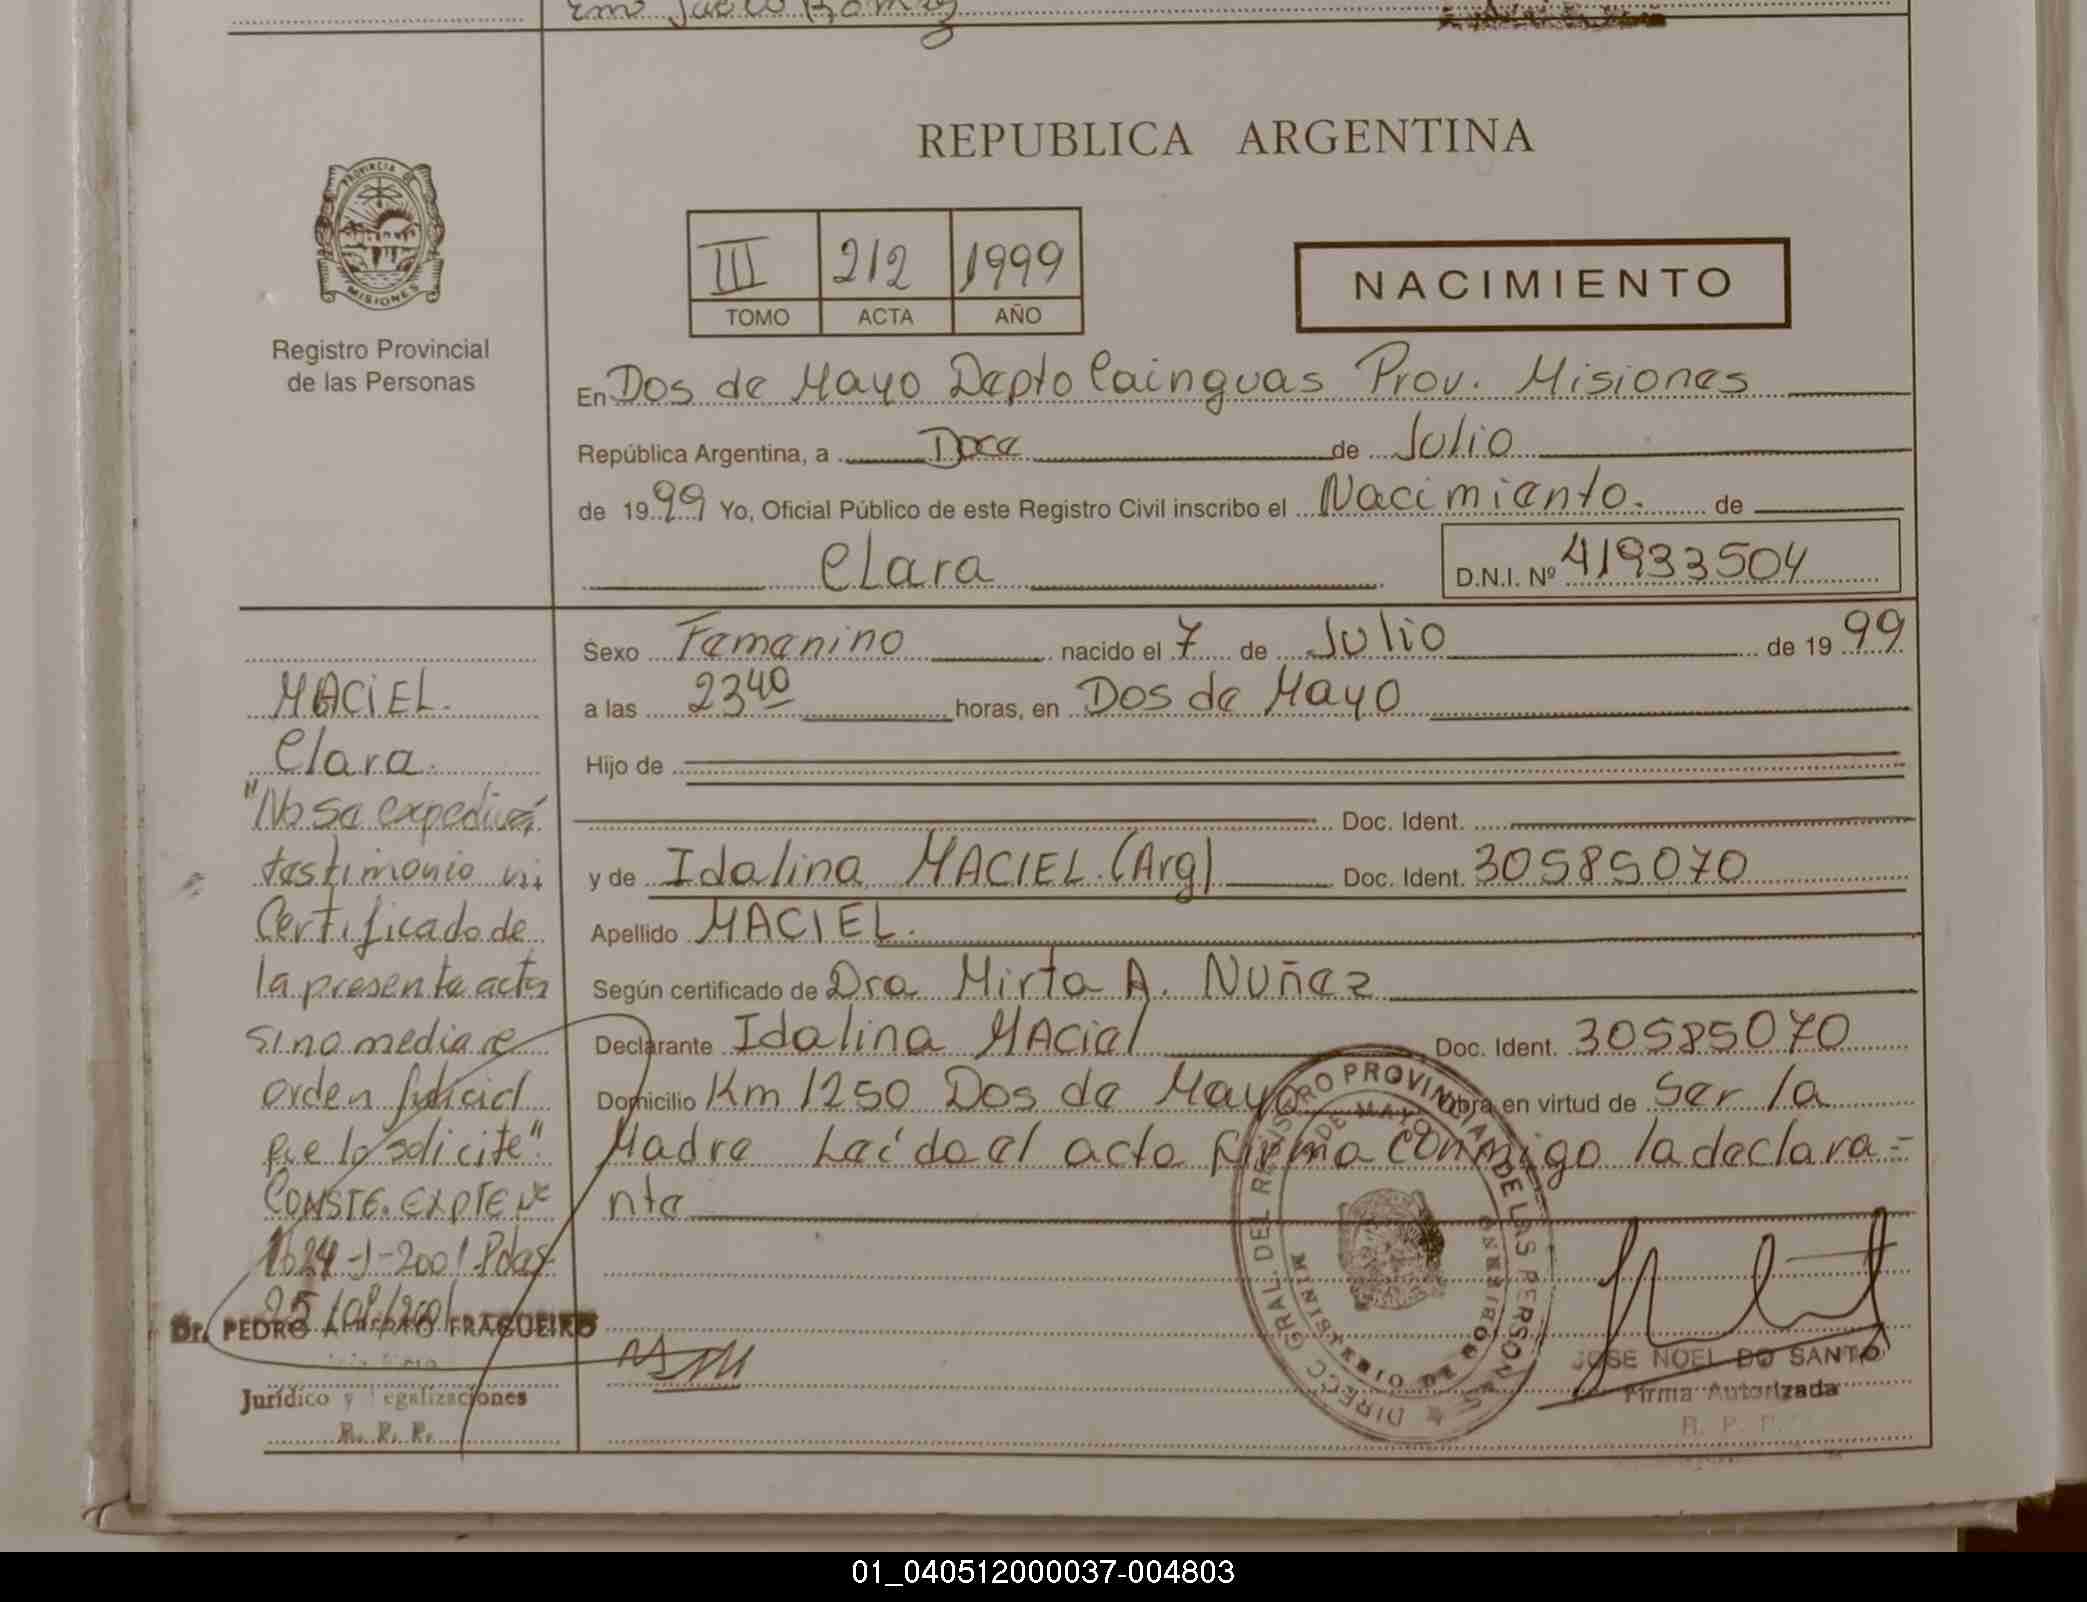 REPUBLICA ARGENTINA
PROVINCIA DE
MISIONES
Registro Provincial
de las Personas
III 212 1999
TOMO ACTA AÑO
NACIMIENTO
En Dos de Mayo Depto Cainguas Prov. Misiones
República Argentina, a Doce de Julio
de 1999 Yo, Oficial Público de este Registro Civil inscribo el Nacimiento. de
Clara D.N.I. Nº 41933504
Sexo Femenino nacido el 7 de Julio de 1999
a las 23 40 horas, en Dos de Mayo
Hijo de
Doc. Ident.
y de Idalina MACIEL (Arg) Doc. Ident. 30585070
Apellido MACIEL.
Según certificado de Dra Mirta A. Nuñez
Declarante Idalina MACiel Doc. Ident. 30585070
Domicilio Km 1250 Dos de Mayo Obra en virtud de Ser la
Madre Leído el acta firma conmigo la declara-
nte
MACiEL.
Clara.
"No se expedirá
testimonio ni
Certificado de
la presente acta
sino mediare
orden judicial
que lo solicite".
CONSTE. EXPTE Nº
1624-J-2001 Pdas
Dr. PEDRO FRAGUEIRO
Jurídico y Legalizaciones
R. P. P.
DIRECC. GRAL. DEL REGISTRO PROVINCIAL DE LAS PERSONAS
DE MAYO
MINISTERIO DE GOBIERNO
JOSE NOEL DO SANTO
Firma Autorizada
R. P. P.
01_040512000037-004803